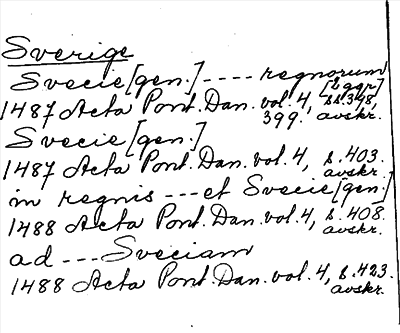 Sverige
Svecie [gen.] ---- regnorum
[2 ggr]
1487 Acta Pont. Dan. vol. 4, ss. 398,
399. avskr.
Svecie [gen.]
1487 Acta Pont. Dan. vol. 4, s. 403.
avskr.
in regnis --- et Svecie [gen.]
1488 Acta Pont. Dan. vol. 4, s. 408.
avskr.
ad --- Sveciam
1488 Acta Pont. Dan. vol. 4, s. 423.
avskr.